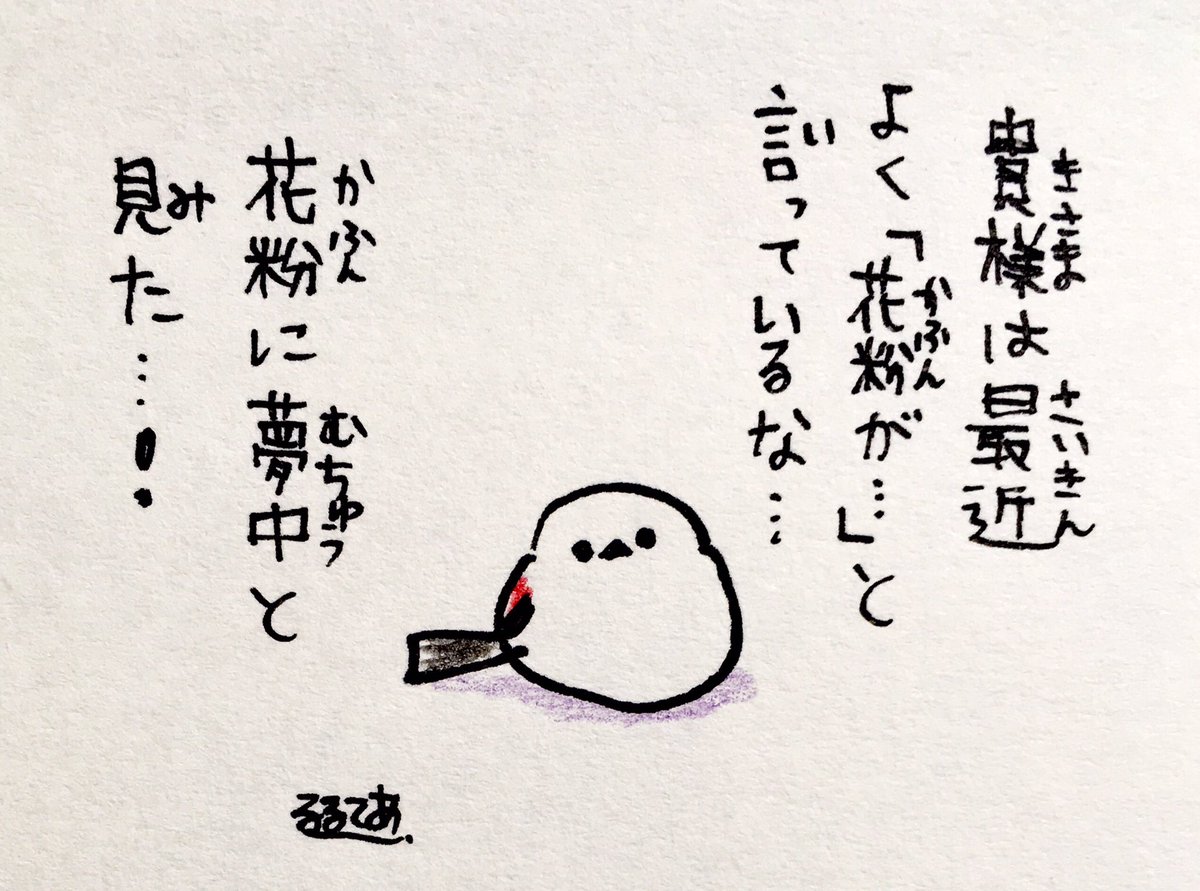 貴様は最近
きさま
さいきん
よく「花粉が…」と
かふん
言っているな…
い
花粉に夢中と
かふん
むちゅう
見た…！
み
るるてあ.